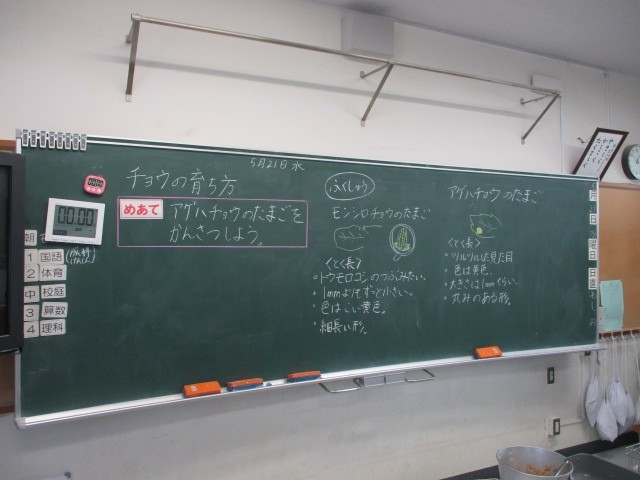 5月21日水
チョウの育ち方
めあて
アゲハチョウのたまごを
かんさつしよう。
ふくしゅう
モンシロチョウのたまご
<とく長>
・トウモロコシのつぶみたい。
・1mmよりずっと小さい。
・色はこい黄色。
・細長い形。
アゲハチョウのたまご
<とく長>
・ツルツルした見た目
・色は黄色。
・大きさは1mmくらい。
・丸みのある形。
00:00
朝
1 国語
2 体育
中 校庭
3 算数
4 理科
月
日
曜
日
日
直